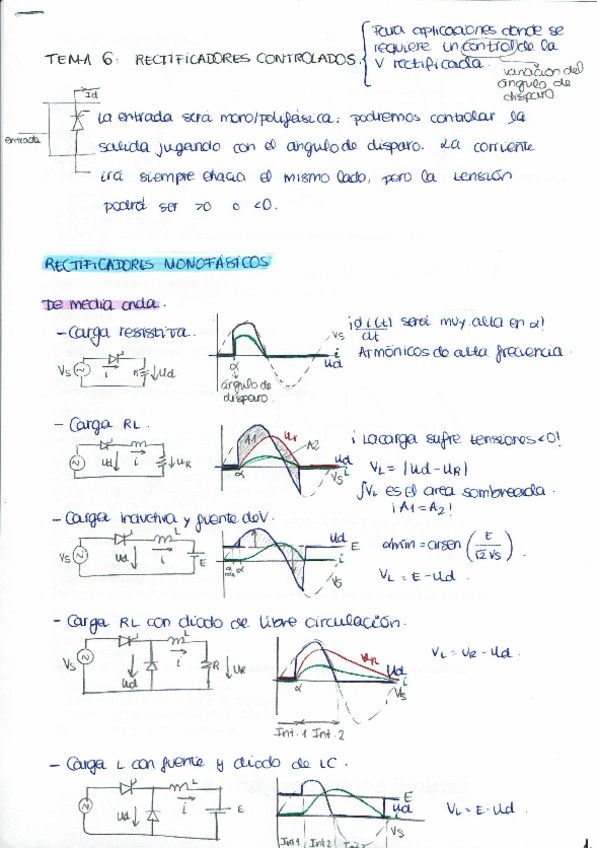 TEMA 6: RECTIFICADORES CONTROLADOS.
Para aplicaciones donde se
requiere un control de la
V rectificada.
variación del
ángulo de
disparo
Id
entrada
La entrada será mono/polifásica; podremos controlar la
salida jugando con el angulo de disparo. La corriente
irá siempre hacia el mismo lado, pero la tensión
podrá ser >0 o <0.
RECTIFICADORES MONOFÁSICOS
De media onda.
- Carga resistiva.
Vs i R Ud
α Vs i Ud
ángulo de
disparo.
¡di(t)/dt será muy alta en α!
Armónicos de alta frecuencia.
- Carga RL.
Ud i UR
A1 UR A2 Ud i Vs α
¡La carga sufre tensiones <0!
VL = |Ud - UR|
∫VL es el area sombreada
¡A1 = A2!
- Carga inductiva y fuente de V.
Vs Ud L i E
Ud E i Vs
αmín = arcsen (E/√2 Vs).
VL = E - Ud.
- Carga RL con diodo de libre circulación.
Vs Ud L i R UR
UR Ud i Vs α
Int. 1 Int. 2
VL = UR - Ud.
- Carga L con fuente y diodo de LC.
Ud L i E
E Ud i Vs
Int 1 Int 2 Int
VL = E - Ud.
1